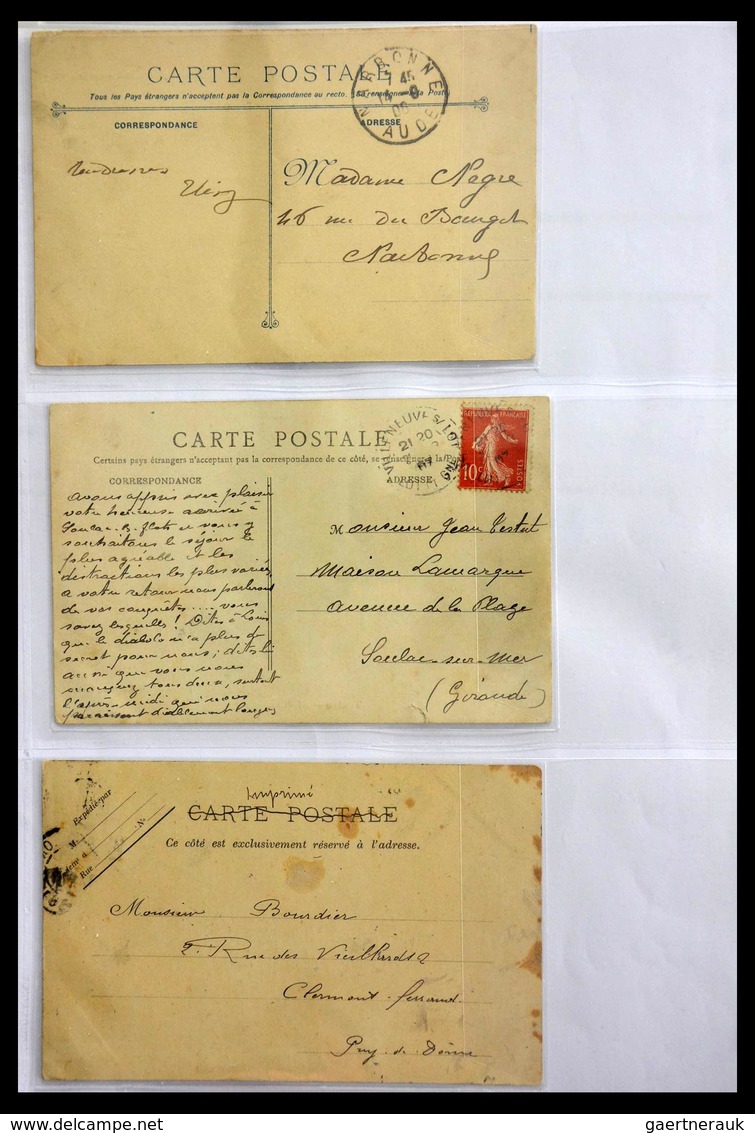 CARTE POSTALE
Tous les Pays étrangers n'acceptent pas la Correspondance au recto. (Se renseigner à la Poste)
NARBONNE
AUDE
CORRESPONDANCE
ADRESSE
Madame Negre
46 rue du
Narbonne
CARTE POSTALE
Certains pays étrangers n'acceptent pas la correspondance de ce côté, se renseigner à la Poste
VILLENEUVE S/ LOT
21 20
REPUBLIQUE FRANÇAISE
10c
POSTES
CORRESPONDANCE
ADRESSE
avons appris avec plaisir
votre heureuse arrivée à
et vous y
souhaitons le séjour le
plus agréable et les
distractions les plus variées
a votre retour nous parlerons
de vos conquêtes .... vous
savez lesquelles! Dites à Louis
que le diabolo n'a plus de
secret pour nous; dites lui
aussi que vous nous
manquez tous deux, surtout
l'après-midi qui nous
paraissent diablement longues
Monsieur Jean Testut
Maison Lamarque
avenue de la Plage
Soulac-sur-Mer
(Gironde)
Imprimé
CARTE POSTALE
Ce côté est exclusivement réservé à l'adresse.
Expédié par
M.
Demeurant à
Rue N°
Monsieur Bourdier
2. Rue des Vieillards 2
Clermont-ferrand
Puy-de-Dôme
gaertnerauk